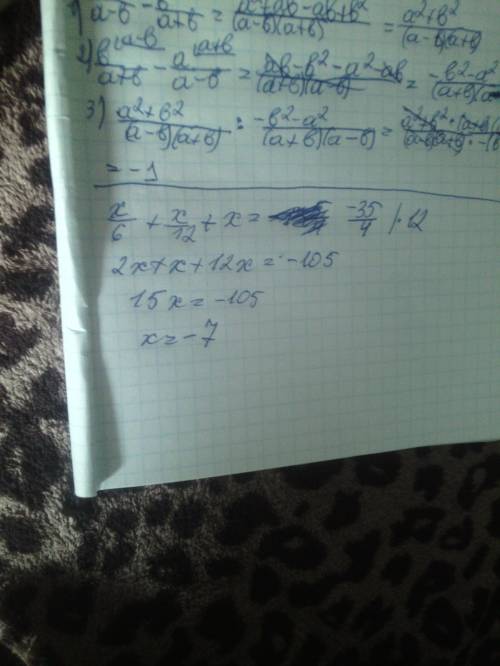 1) a/(a-b) - b/(a+b) = (a²+ab-ab+b²)/((a-b)(a+b)) = (a²+b²)/((a-b)(a+b))
2) b/(a+b) - a/(a-b) = (ab-b²-a²-ab)/((a+b)(a-b)) = (-b²-a²)/((a+b)(a
3) (a²+b²)/((a-b)(a+b)) : (-b²-a²)/((a+b)(a-b)) =
= -1
x/6 + x/12 + x = -35/4 | · 12
2x+x+12x = -105
15x = -105
x = -7